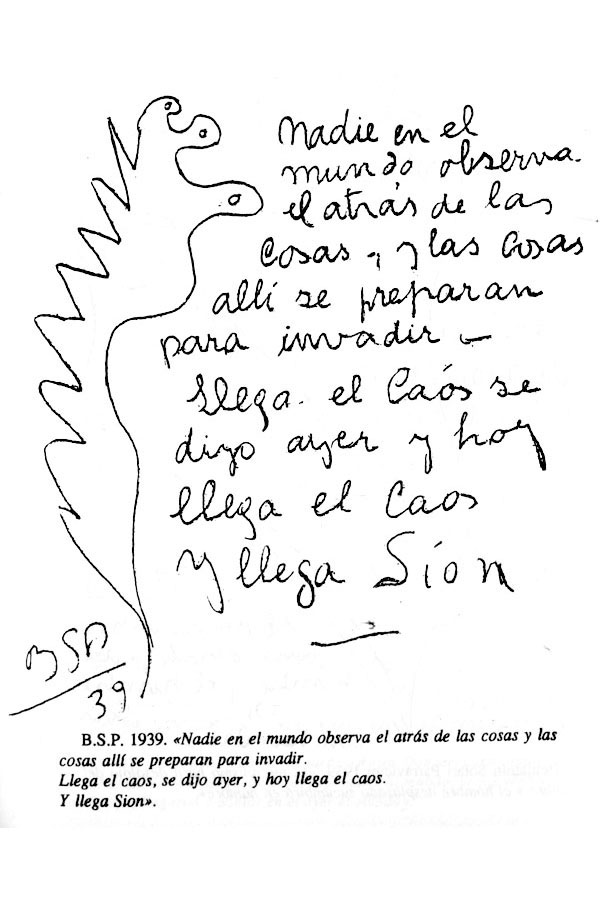 Nadie en el
mundo observa
el atrás de las
cosas, y las cosas
allí se preparan
para invadir -
Llega el Caós se
dijo ayer y hoy
llega el Caos
Y llega Sion
BSP
39
B.S.P. 1939. «Nadie en el mundo observa el atrás de las cosas y las
cosas allí se preparan para invadir.
Llega el caos, se dijo ayer, y hoy llega el caos.
Y llega Sion».